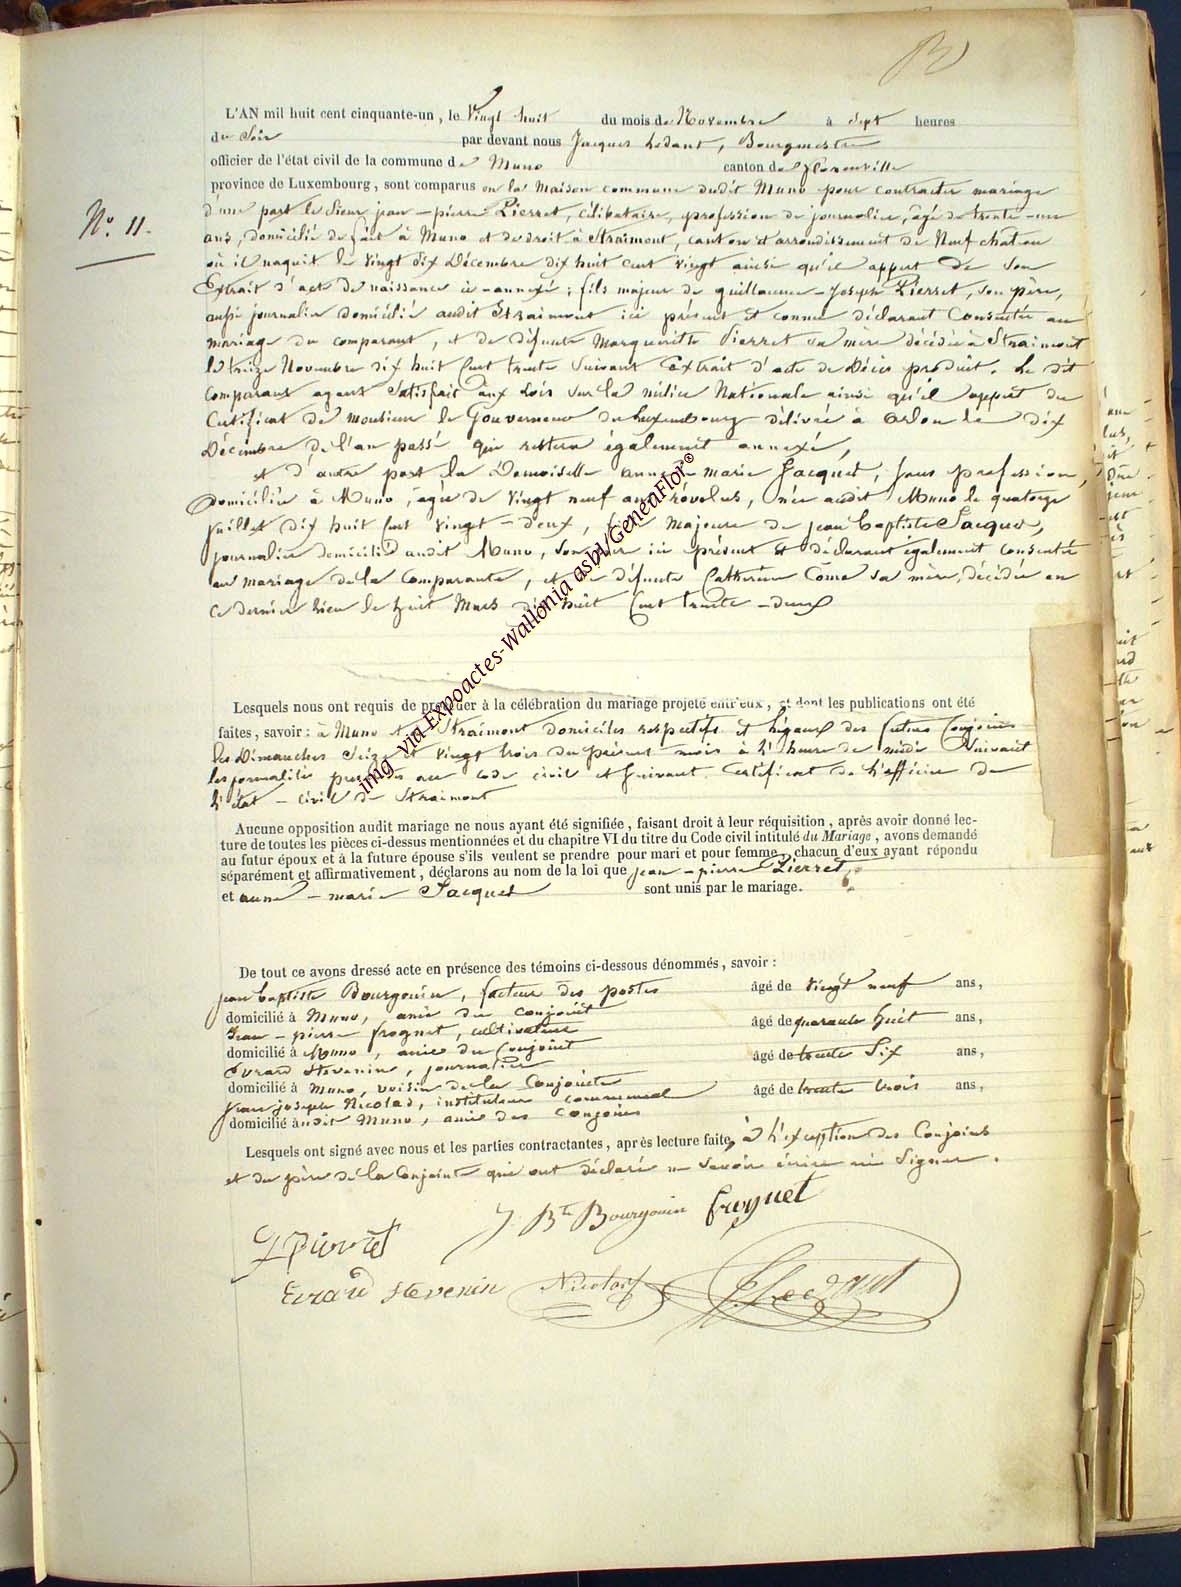 N.o 11.
L'AN mil huit cent cinquante-un, le Vingt huit du mois de Novembre à Sept heures
du Soir par devant nous Jacques Ledant, Bourgmestre
officier de l'état civil de la commune de Muno canton de florenville
province de Luxembourg, sont comparus en la Maison commune dudit Muno pour contracter mariage
d'une part le Sieur jean-pierre Pierret, célibataire, profession de journalier, âgé de trente-un
ans, domicilié de fait à Muno et de droit à Straimont, canton et arrondissement de Neufchateau
où il naquit le vingt dix Décembre dix huit cent vingt ainsi qu'il appert de son
Extrait d'acte de naissance ci-annexé; fils majeur de guillaume-Joseph Pierret, son père,
aussi journalier domicilié audit Straimont ici présent et connu déclarant Consentir au
mariage du comparant, et de défunte Marguerite Pierret sa mère décédée à Straimont
le treize Novembre dix huit Cent trente Suivant Extrait d'acte de Décès produit. Le dit
comparant ayant Satisfait aux Lois sur la milice Nationale ainsi qu'il appert du
Certificat de Monsieur le Gouverneur du Luxembourg délivré à Arlon le dix
Décembre de l'an passé qui restera également annexé,
et d'autre part la Demoiselle anne-marie Jacquet, sans profession,
Domiciliée à Muno, agée de vingt neuf ans révolus, née audit Muno le quatorze
Juillet dix huit Cent vingt-deux, fille Majeure de jean baptiste Jacquet,
journalier domicilié audit Muno, Son père ici présent et déclarant également consentir
au mariage de la Comparante, et de défunte Catherine Come sa mère, décédée en
ce dernier lieu le huit Mars dix huit Cent trente-deux
Lesquels nous ont requis de procéder à la célébration du mariage projeté entr'eux, et dont les publications ont été
faites, savoir: à Muno et à Straimont domiciles respectifs et légaux des futurs Conjoins
les Dimanches Seize et Vingt trois du présent mois à l'heure de midi Suivant
les formalités prescrites au code civil et suivant Certificat de l'officier de
l'état-civil de Straimont
Aucune opposition audit mariage ne nous ayant été signifiée, faisant droit à leur réquisition, après avoir donné lec-
ture de toutes les pièces ci-dessus mentionnées et du chapitre VI du titre du Code civil intitulé du Mariage, avons demandé
au futur époux et à la future épouse s'ils veulent se prendre pour mari et pour femme, chacun d'eux ayant répondu
séparément et affirmativement, déclarons au nom de la loi que jean-pierre Pierret
et anne-marie Jacquet sont unis par le mariage.
De tout ce avons dressé acte en présence des témoins ci-dessous dénommés, savoir:
jean baptiste Bourgouin, facteur des postes âgé de vingt neuf ans,
domicilié à Muno, ami du conjoint
Jean-pierre frognet, cultivateur âgé de quarante huit ans,
domicilié à Muno, ami du Conjoint
Evrard Stevenin, journalier âgé de trente Six ans,
domicilié à Muno, voisin de la Conjointe
jean joseph Nicolas, instituteur communal âgé de trente trois ans,
domicilié audit Muno, ami des Conjoins
Lesquels ont signé avec nous et les parties contractantes, après lecture faite, à l'exception des Conjoins
et du père de la Conjointe qui ont déclaré ne Savoir écrire ni Signer.
J Bte Bourgouin frognet
Pierret
Evrard stevenin Nicolas J Ledant
img via Expoactes-Wallonia asbl/GeneaFlor©